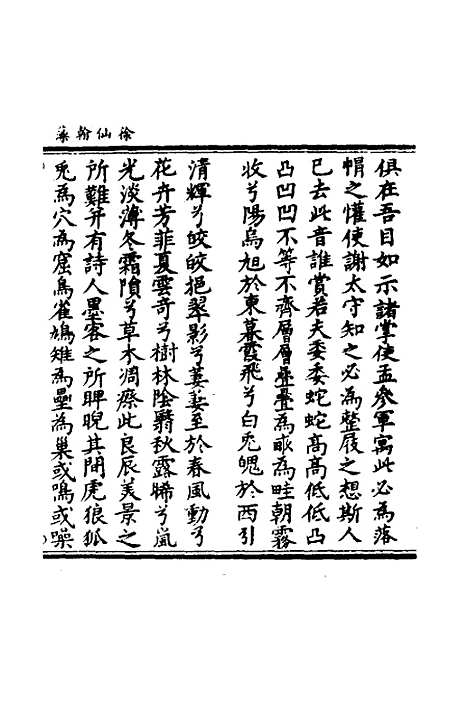 徐仙翰藻
俱在吾目如示諸掌使孟參軍寓此必為落
帽之懽使謝太守知之必為整屐之想斯人
已去此音誰賞若夫委委蛇蛇高高低低凸
凸凹凹不等不齊層層疊疊為畝為畦朝霧
收兮陽烏旭於東暮霞飛兮白兎魄於西引
清輝兮皎皎挹翠影兮萋萋至於春風動兮
花卉芳菲夏雲奇兮樹林陰翳秋露晞兮嵐
光淡薄冬霜隕兮草木凋瘵此良辰美景之
所難并有詩人墨客之所睥睨其間虎狼狐
兎為穴為窟鳥雀鳩雉為壘為巢或鳴或噪